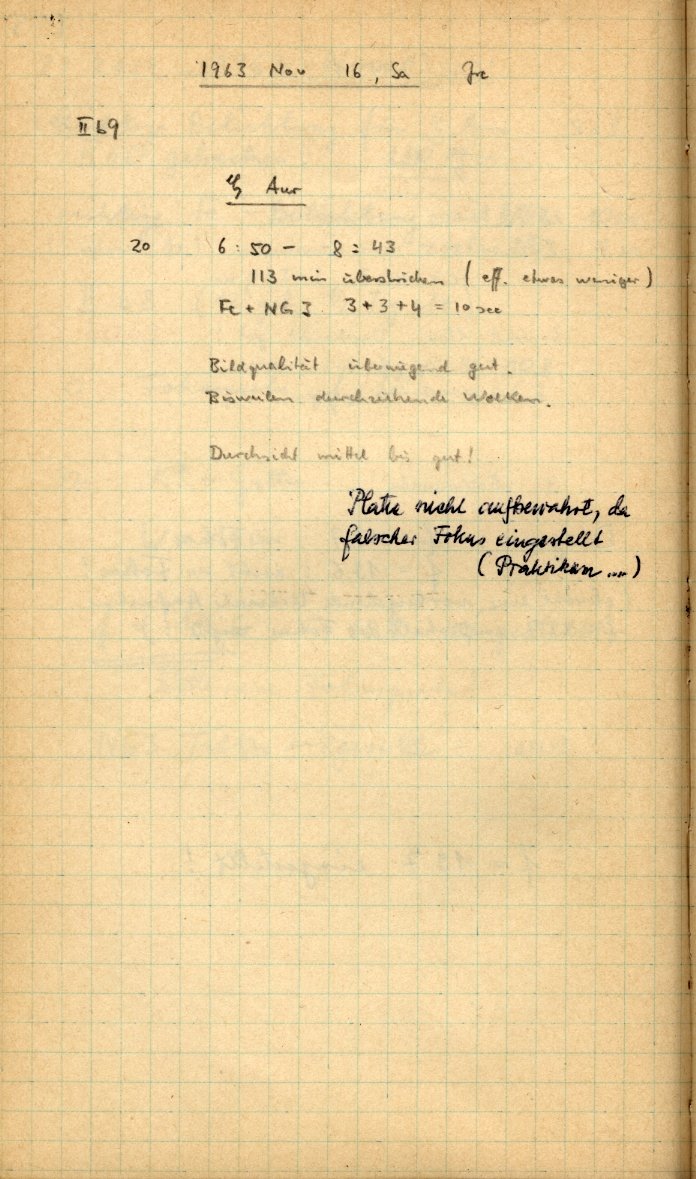 1963 Nov 16, Sa
II 69
Aur
20 6:50 - 8:43
113 min überstrichen (eff. etwas weniger)
Fe + NG I 3+3+4 = 10 sec
Bildqualität überwiegend gut.
Bisweilen durchziehende Wolken.
Durchsicht mittel bis gut!
Platte nicht aufbewahrt, da
falscher Fokus eingestellt
(Praktikan....)